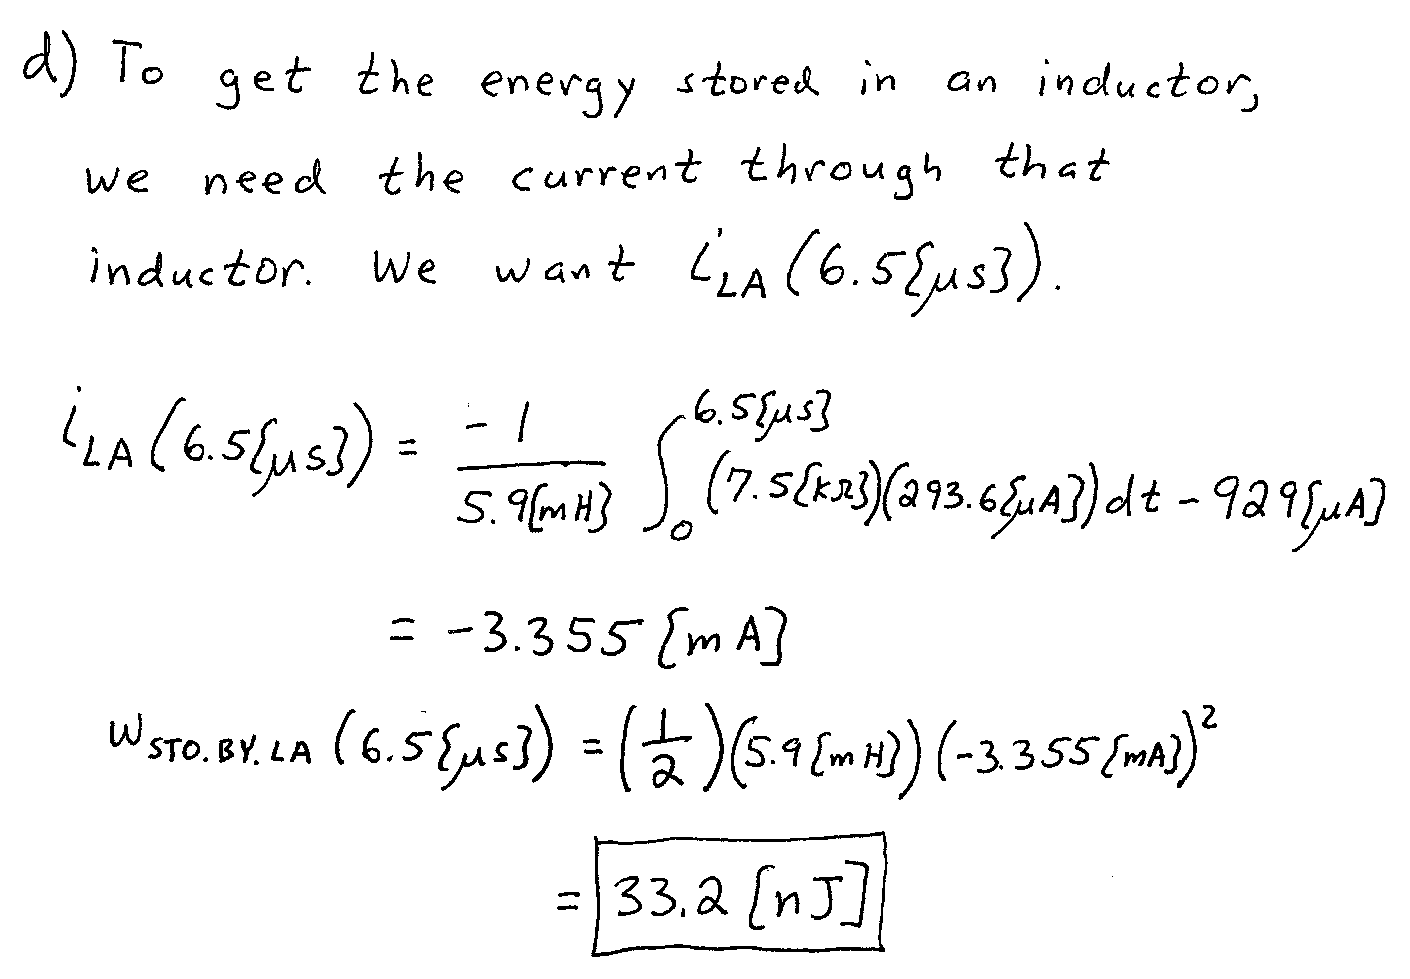 d) To get the energy stored in an inductor,
we need the current through that
inductor. We want i_LA (6.5{μs}).
i_LA (6.5{μs}) = -1/5.9{mH} ∫_0^6.5{μs} (7.5{kΩ})(293.6{μA}) dt - 929{μA}
= -3.355 {mA}
W_STO.BY.LA (6.5{μs}) = (1/2)(5.9{mH})(-3.355{mA})^2
= 33.2 [nJ]